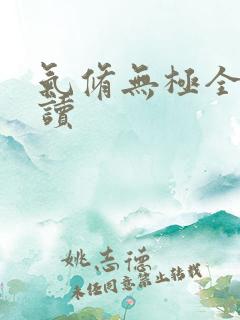 氣脩無極全
讀
姚志德
未经同意禁止转载